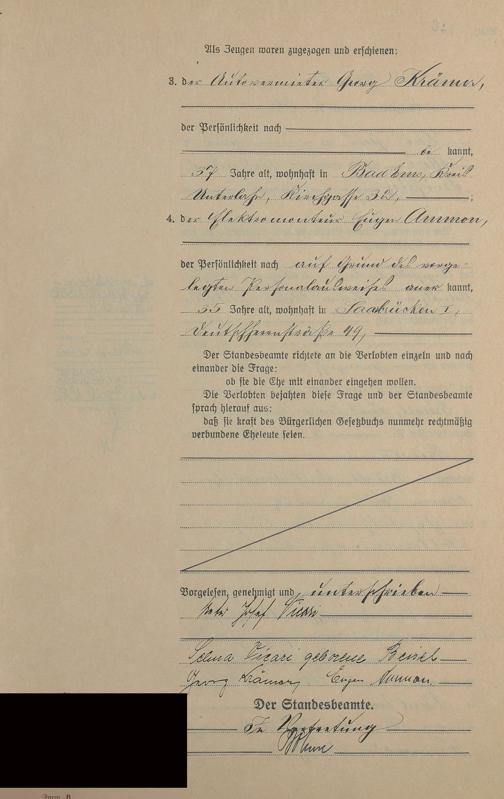 Als Zeugen waren zugezogen und erschienen:
3. der Autovermieter Georg Krämer,
der Persönlichkeit nach
be kannt,
57 Jahre alt, wohnhaft in Bad Ems, Kreis
Unterlahn, Kirchgasse 32, ;
4. der Elektromonteur Eugen Ammon,
der Persönlichkeit nach auf Grund des vorge-
legten Personalausweises aner kannt,
55 Jahre alt, wohnhaft in Saarbrücken 1,
Deutschherrenstraße 49,
Der Standesbeamte richtete an die Verlobten einzeln und nach
einander die Frage:
ob sie die Ehe mit einander eingehen wollen.
Die Verlobten bejahten diese Frage und der Standesbeamte
sprach hierauf aus:
daß sie kraft des Bürgerlichen Gesetzbuchs nunmehr rechtmäßig
verbundene Eheleute seien.
Vorgelesen, genehmigt und unterschrieben
Peter Josef Vicari
Selma Vicari geborene Beisel
Georg Krämer, Eugen Ammon.
Der Standesbeamte.
In Vertretung
Form. B.